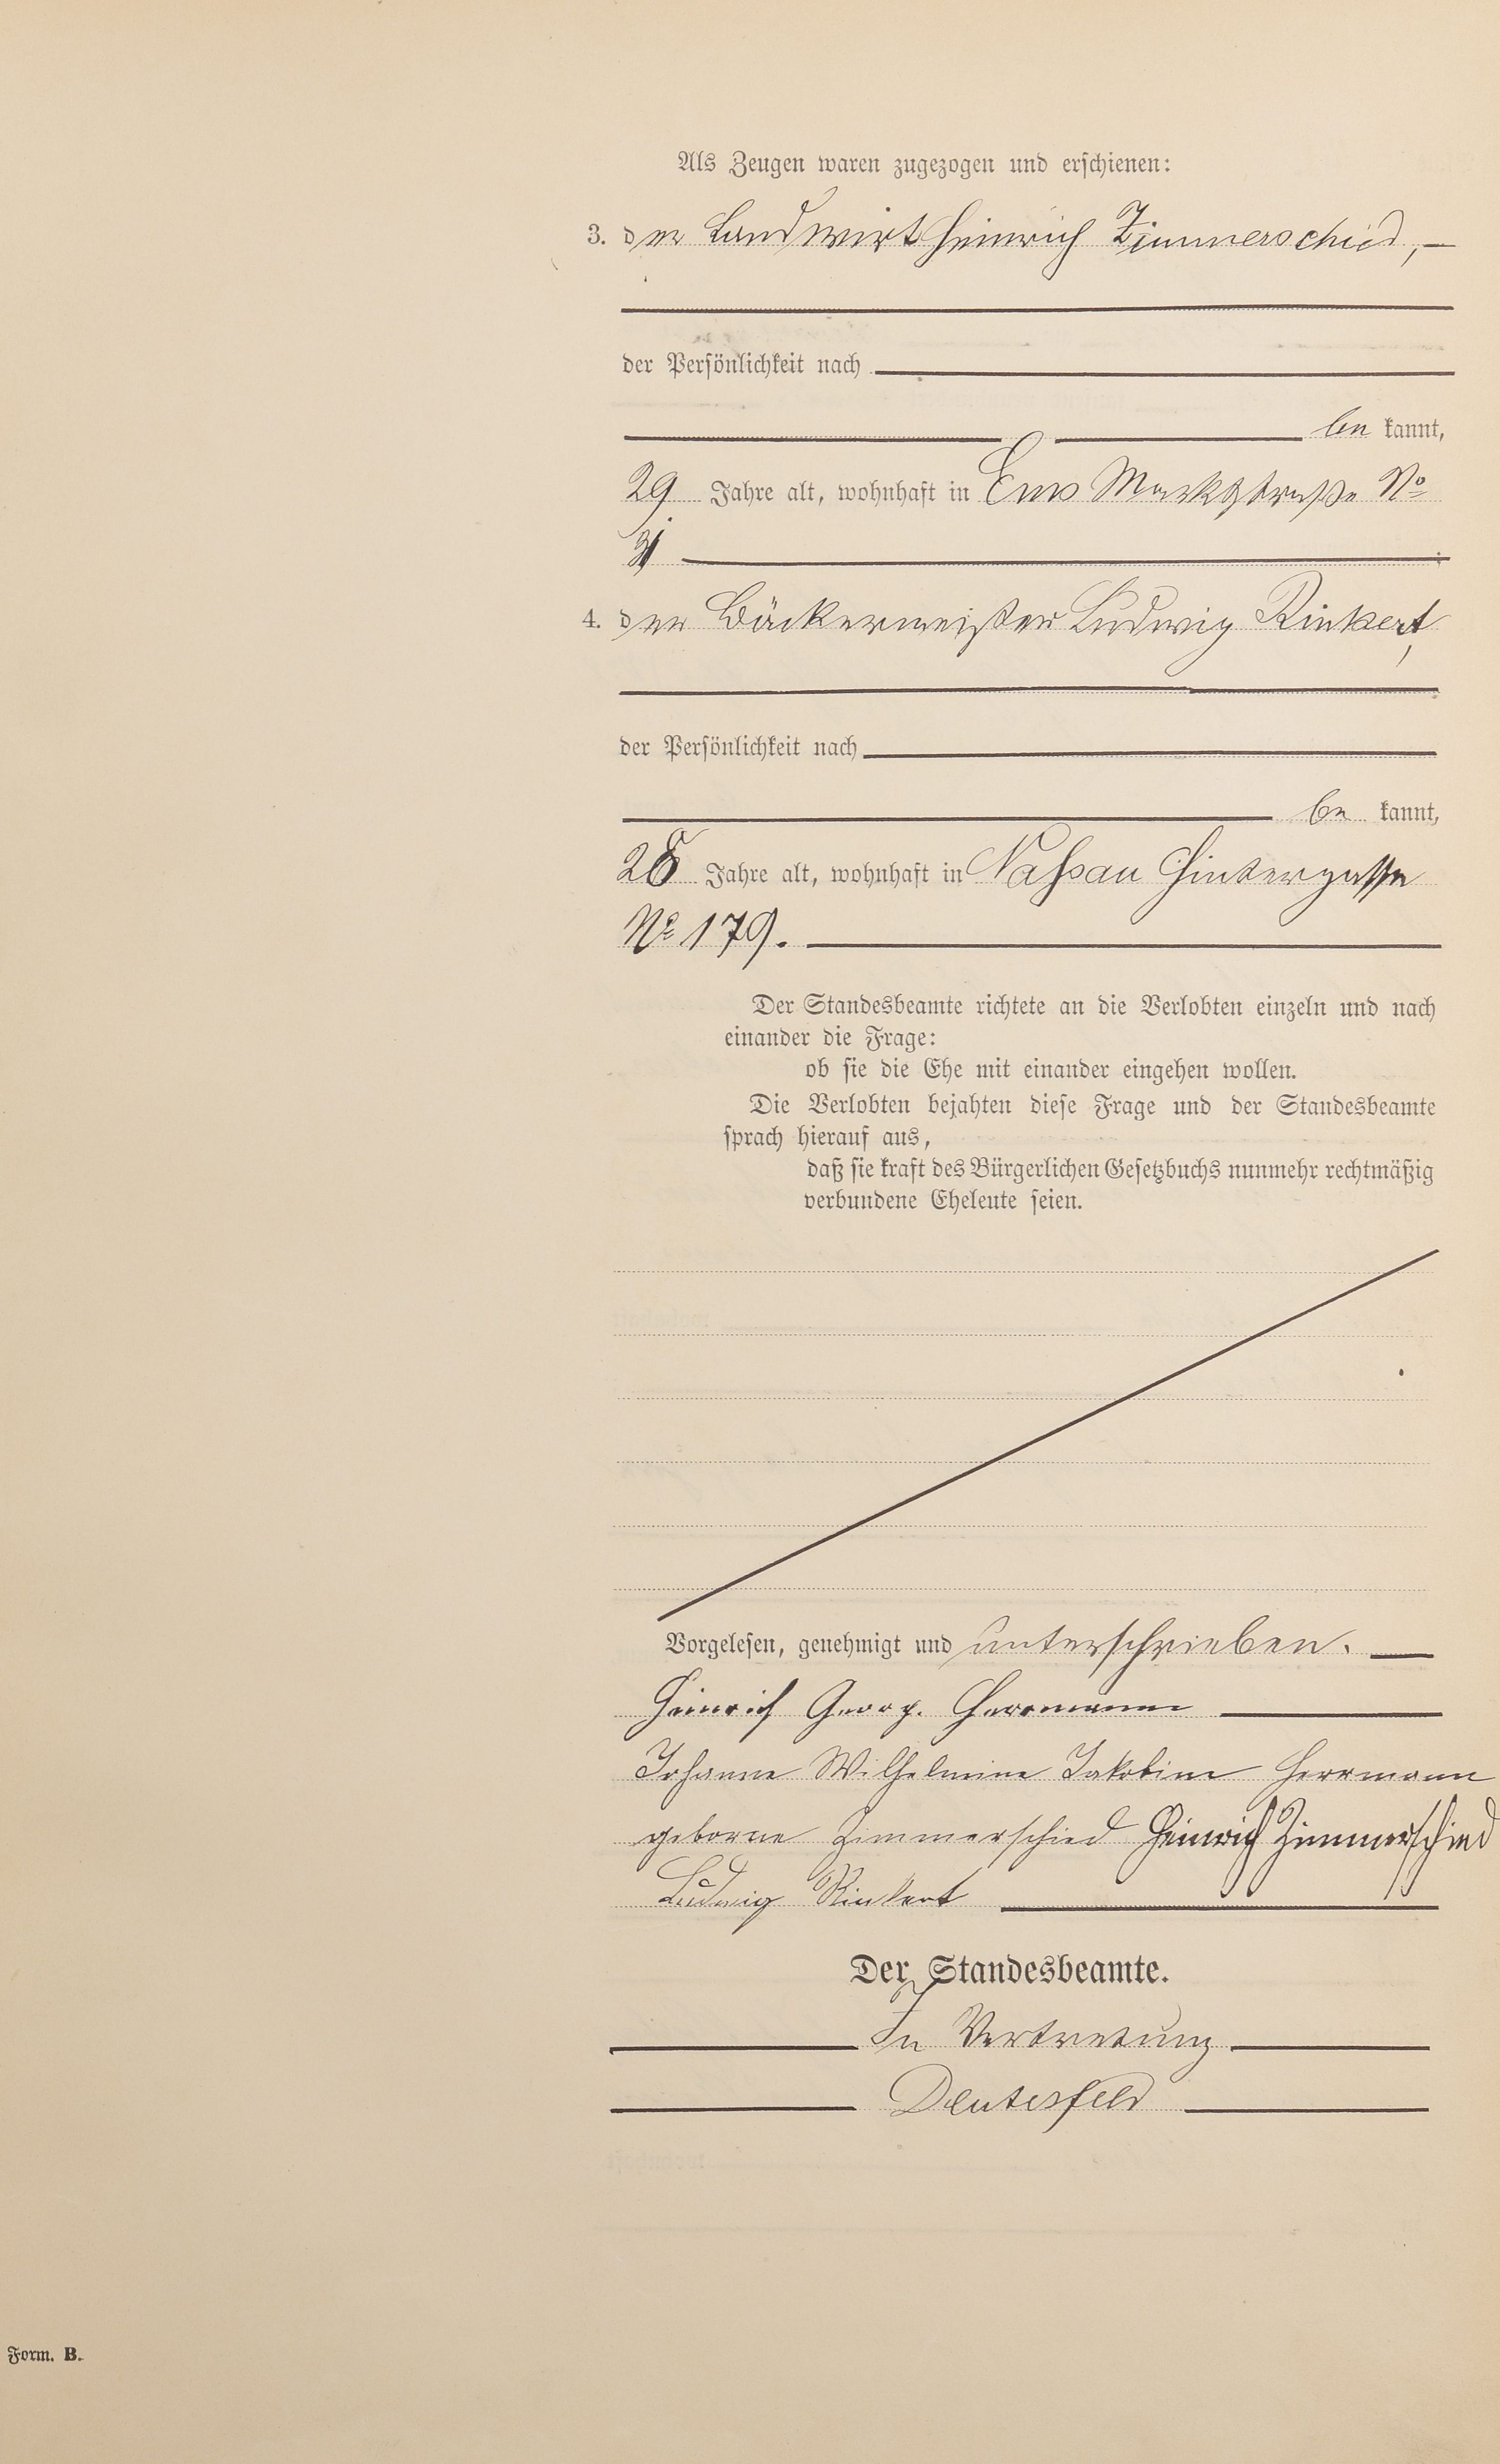 Als Zeugen waren zugezogen und erschienen:
3. der Landwirt Heinrich Zimmerschied, —
der Persönlichkeit nach
be kannt,
29 Jahre alt, wohnhaft in Ems Marktstraße No
4. der Bäckermeister Ludwig Rinkert,
der Persönlichkeit nach
be kannt,
28 Jahre alt, wohnhaft in Nassau Hintergasse
No 179.
Der Standesbeamte richtete an die Verlobten einzeln und nach
einander die Frage:
ob sie die Ehe mit einander eingehen wollen.
Die Verlobten bejahten diese Frage und der Standesbeamte
sprach hierauf aus,
daß sie kraft des Bürgerlichen Gesetzbuchs nunmehr rechtmäßig
verbundene Eheleute seien.
Vorgelesen, genehmigt und unterschrieben.
Heinrich Georg Herrmann
Johanne Wilhelmine Jakobine Herrmann
geborne Zimmerschied Heinrich Zimmerschied
Ludwig Rinkert
Der Standesbeamte.
In Vertretung
Deutesfeld
Form. B.